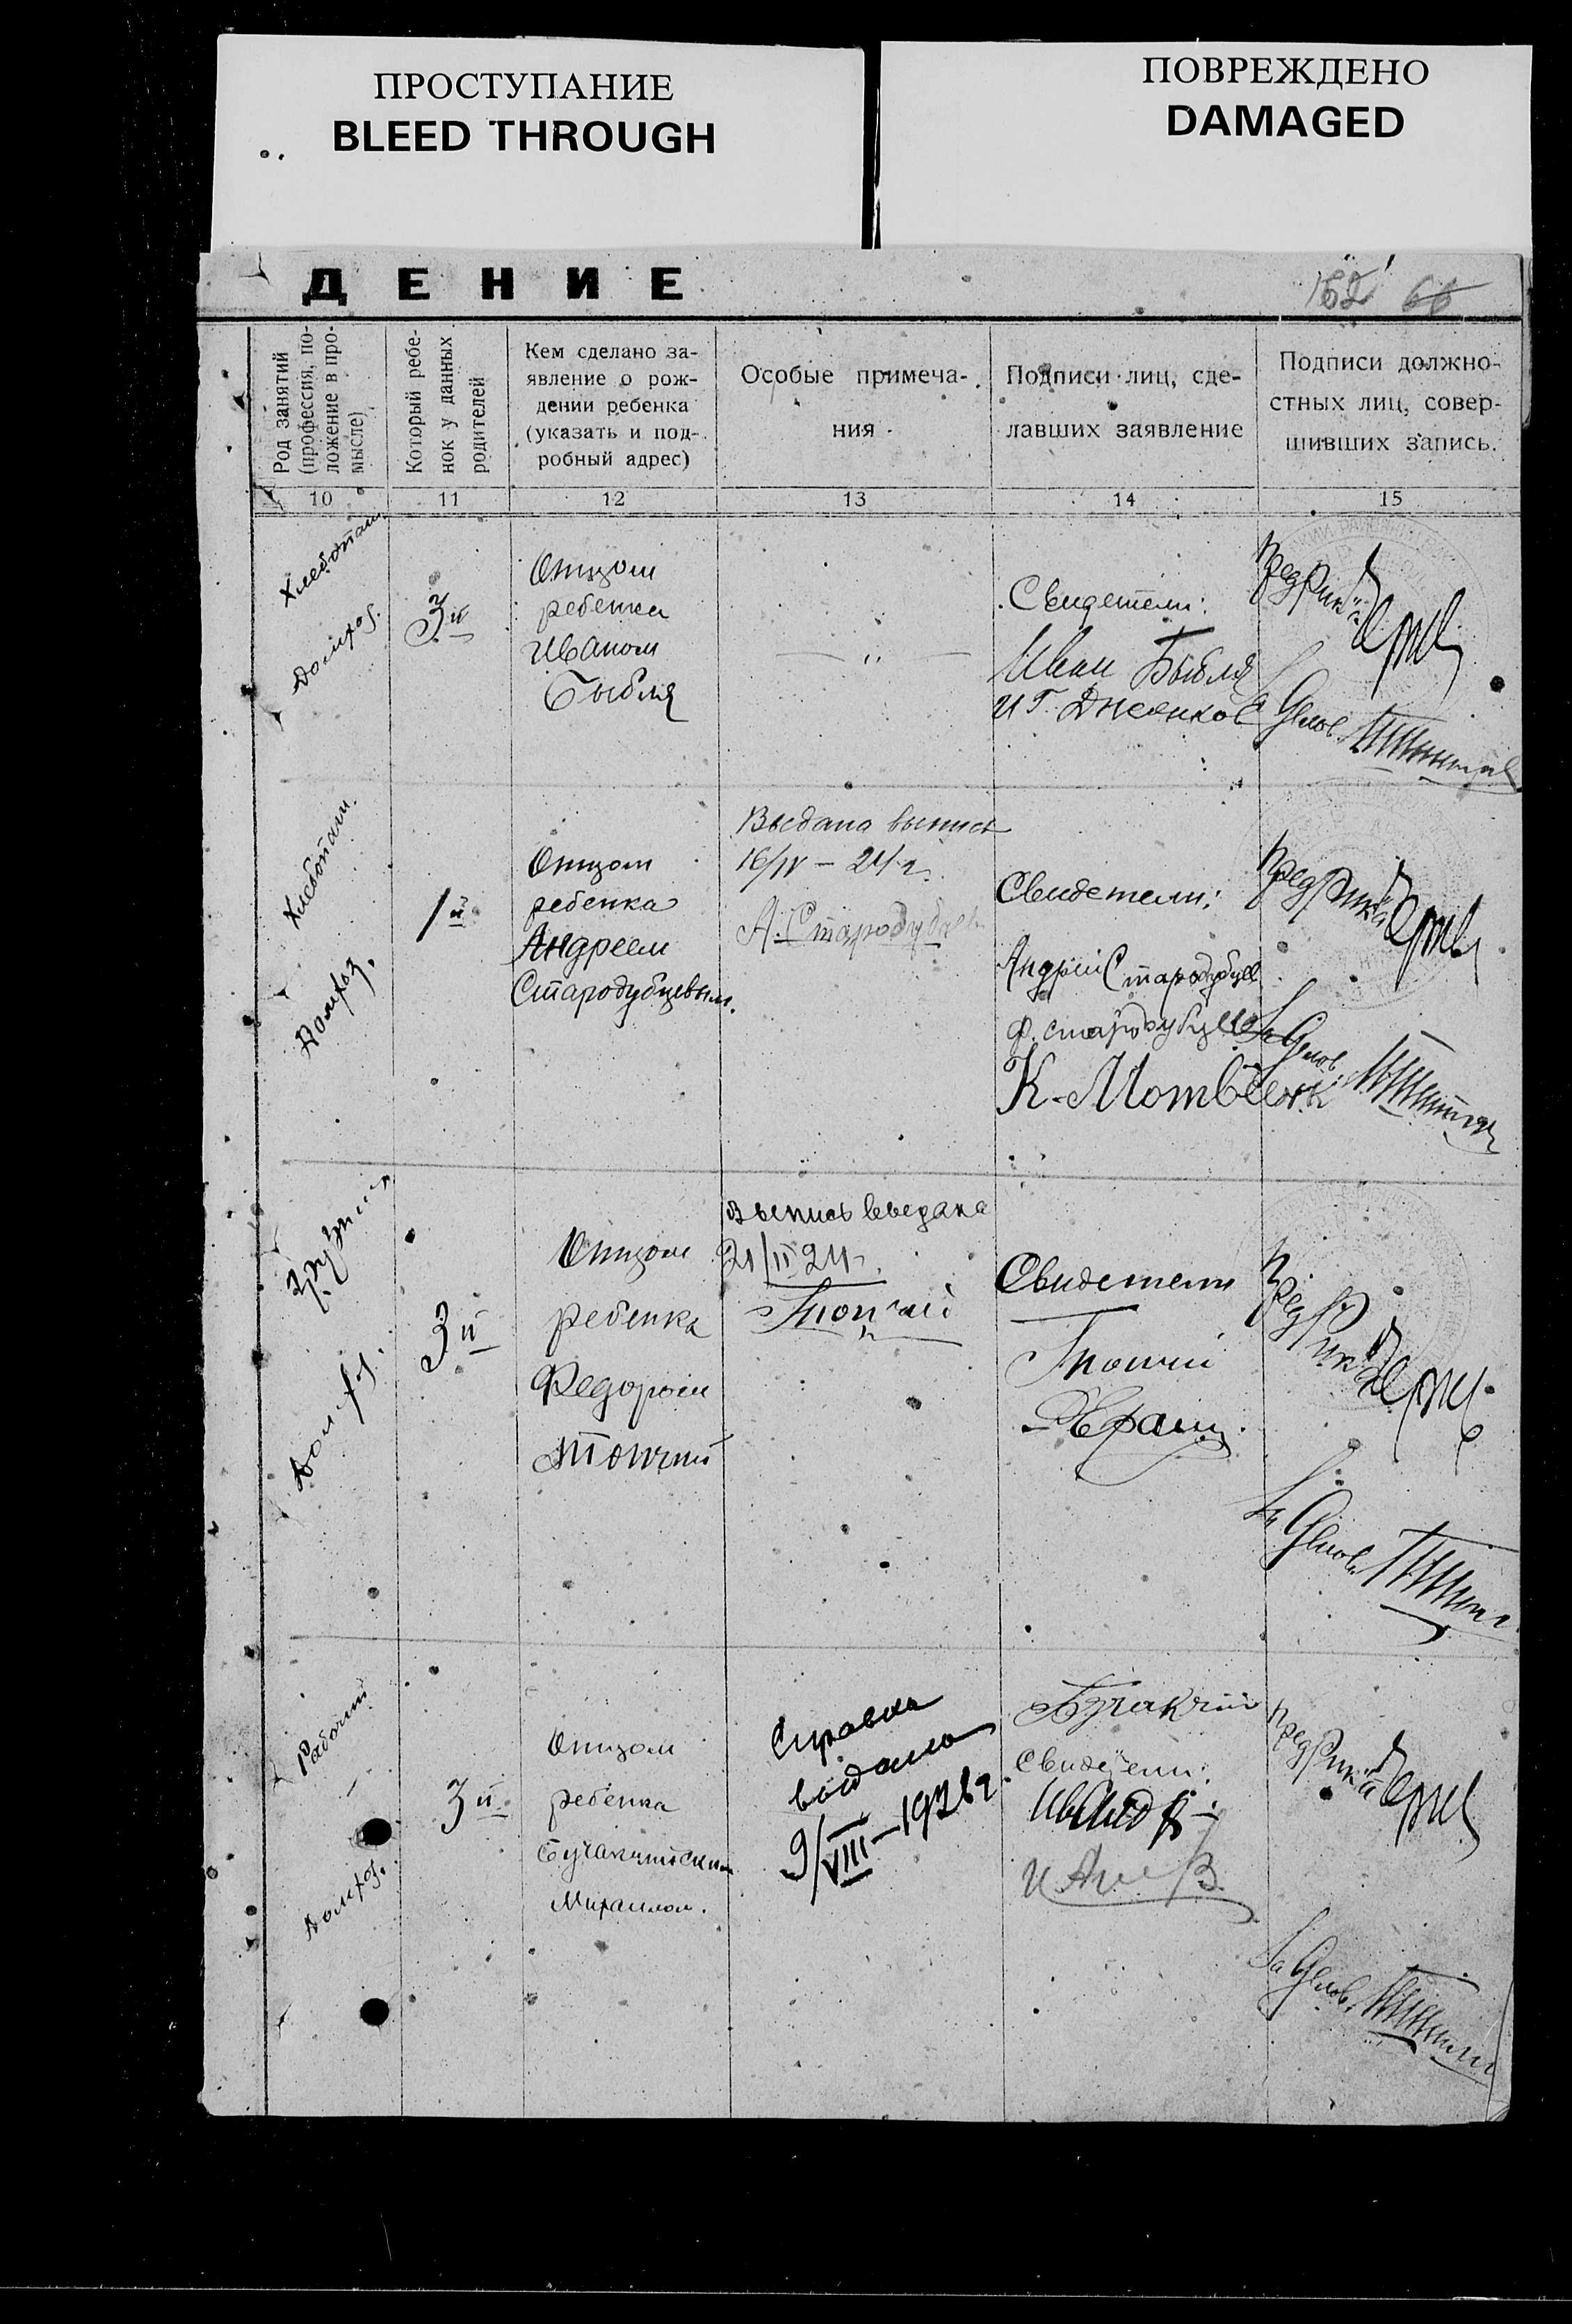 ПРОСТУПАНИЕ
BLEED THROUGH
ПОВРЕЖДЕНО
DAMAGED
ДЕНИЕ
152 66
Род занятий
(профессия, по-
ложение в про-
мысле)
Который ребе-
нок у данных
родителей
Кем сделано за-
явление о рож-
дении ребенка
(указать и под-
робный адрес)
Особые примеча-
ния
Подписи лиц, сде-
лавших заявление
Подписи должно-
стных лиц, совер-
шивших запись.
10 11 12 13 14 15
Хлебопаш.
Домхоз.
3й
Отцом
ребенка
Иваном
Быбля
— „ —
Свидетели:
Иван Быбля
и Г.
Пред Рик'а
Делов.
Хлебопаш.
Домхоз.
1й
Отцом
ребенка
Андреем
Стародубцевым.
Выдана выпись
16/IV – 24 г.
А. Стародубцев
Свидетели:
Андрей Стародубцев
Ф. Стародубцев
К.
Пред Рик'а
За Делов.
Домхоз.
3й
Отцом
ребенка
Федором
Топчий
Выпись выдана
21/II 24 г.
Топчий
Свидетели
Топчий
Пред Рик'а
За Делов.
Рабочий
Домхоз.
3й
Отцом
ребенка
Михаилом.
Справка
выдана
9/VIII–1926 г
Свидетели:
Пред Рик'а
За Делов.